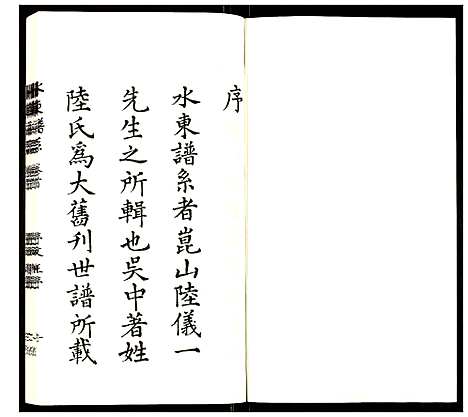 序
水東譜系者崑山陸儀一
先生之所輯也吳中著姓
陸氏爲大舊刊世譜所載